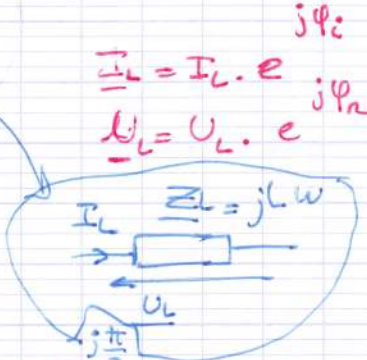 I_L = I_L . e^{jφ_i}
U_L = U_L . e^{jφ_u}
I_L Z_L = jLω
U_L
jπ